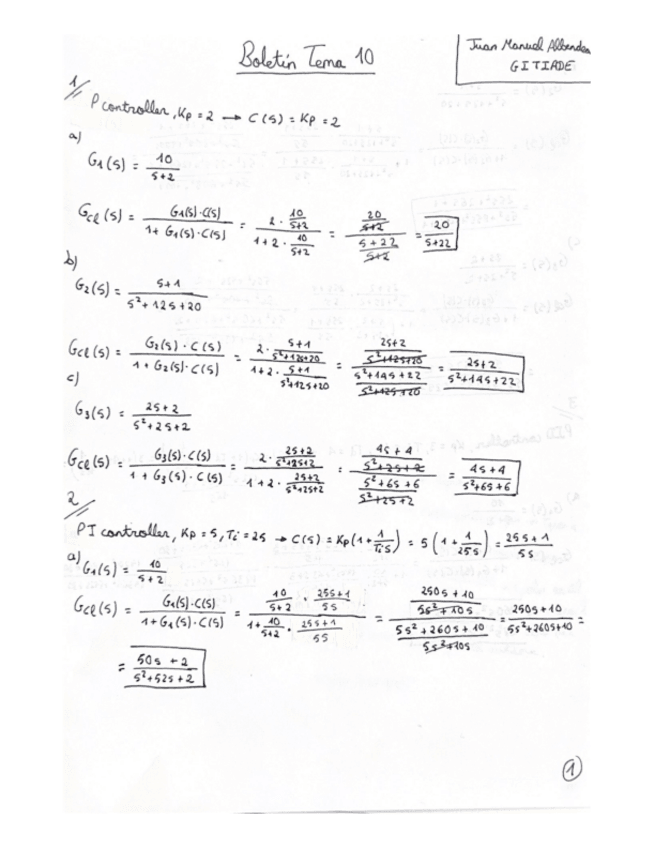 Boletín Tema 10
Juan Manuel
GITIADE
1//
P controller, Kp = 2 → C(s) = Kp = 2
a)
G1(s) = 10 / (s+2)
Gcl(s) = G1(s)·C(s) / (1 + G1(s)·C(s)) = (2 · 10/(s+2)) / (1 + 2 · 10/(s+2)) = (20/(s+2)) / ((s+22)/(s+2)) = 20/(s+22)
b)
G2(s) = (s+1) / (s²+12s+20)
Gcl(s) = G2(s)·C(s) / (1 + G2(s)·C(s)) = (2 · (s+1)/(s²+12s+20)) / (1+2 · (s+1)/(s²+12s+20)) = ((2s+2)/(s²+12s+20)) / ((s²+14s+22)/(s²+12s+20)) = (2s+2)/(s²+14s+22)
c)
G3(s) = (2s+2) / (s²+2s+2)
Gcl(s) = G3(s)·C(s) / (1 + G3(s)·C(s)) = (2 · (2s+2)/(s²+2s+2)) / (1 + 2 · (2s+2)/(s²+2s+2)) = ((4s+4)/(s²+2s+2)) / ((s²+6s+6)/(s²+2s+2)) = (4s+4)/(s²+6s+6)
2//
PI controller, Kp = 5, Ti = 25 → C(s) = Kp(1 + 1/(Ti s)) = 5(1 + 1/(25s)) = (25s+1)/(5s)
a)
G1(s) = 10 / (s+2)
Gcl(s) = G1(s)·C(s) / (1+G1(s)·C(s)) = (10/(s+2) · (25s+1)/(5s)) / (1 + 10/(s+2) · (25s+1)/(5s)) = ((250s+10)/(5s²+10s)) / ((5s²+260s+10)/(5s²+10s)) = (250s+10)/(5s²+260s+10) =
= (50s+2)/(s²+52s+2)
1